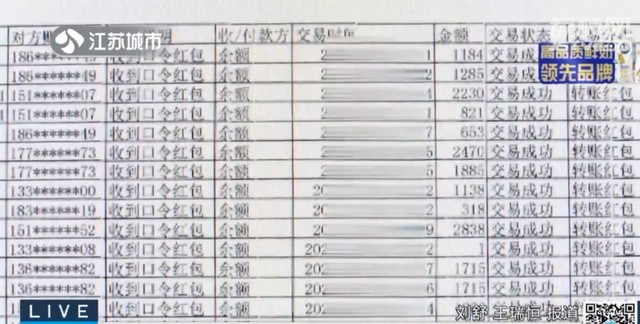 江苏城市
对方 明 收/付款方 交易时间 金额 交易状态
高品质鲜奶
领先品牌
186 收到口令红包 余额 2 1 1184 交易成功
186******49 收到口令红包 余额 2 2 1285 交易成功
151******07 收到口令红包 余额 2 4 2230 交易成功 转账红包
151******07 收到口令红包 余额 2 1 821 交易成功 转账红包
186******49 收到口令红包 余额 2 7 653 交易成功 转账红包
177******73 收到口令红包 余额 2 5 2470 交易成功 转账红包
177******73 收到口令红包 余额 2 5 1885 交易成功 转账红包
133******00 收到口令红包 余额 20 2 1138 交易成功 转账红包
183******19 收到口令红包 余额 20 2 318 交易成功 转账红包
151******52 收到口令红包 余额 20 9 2838 交易成功 转账红包
133******08 收到口令红包 余额 202 2 1 交易成功 转账红包
136******82 收到口令红包 余额 202 7 1715 交易成功 转账红包
136******82 收到口令红包 余额 202 6 1715 交易成功 转账红包
收到口令红包 余额 202 4
LIVE
刘舒 王瑞恒 报道